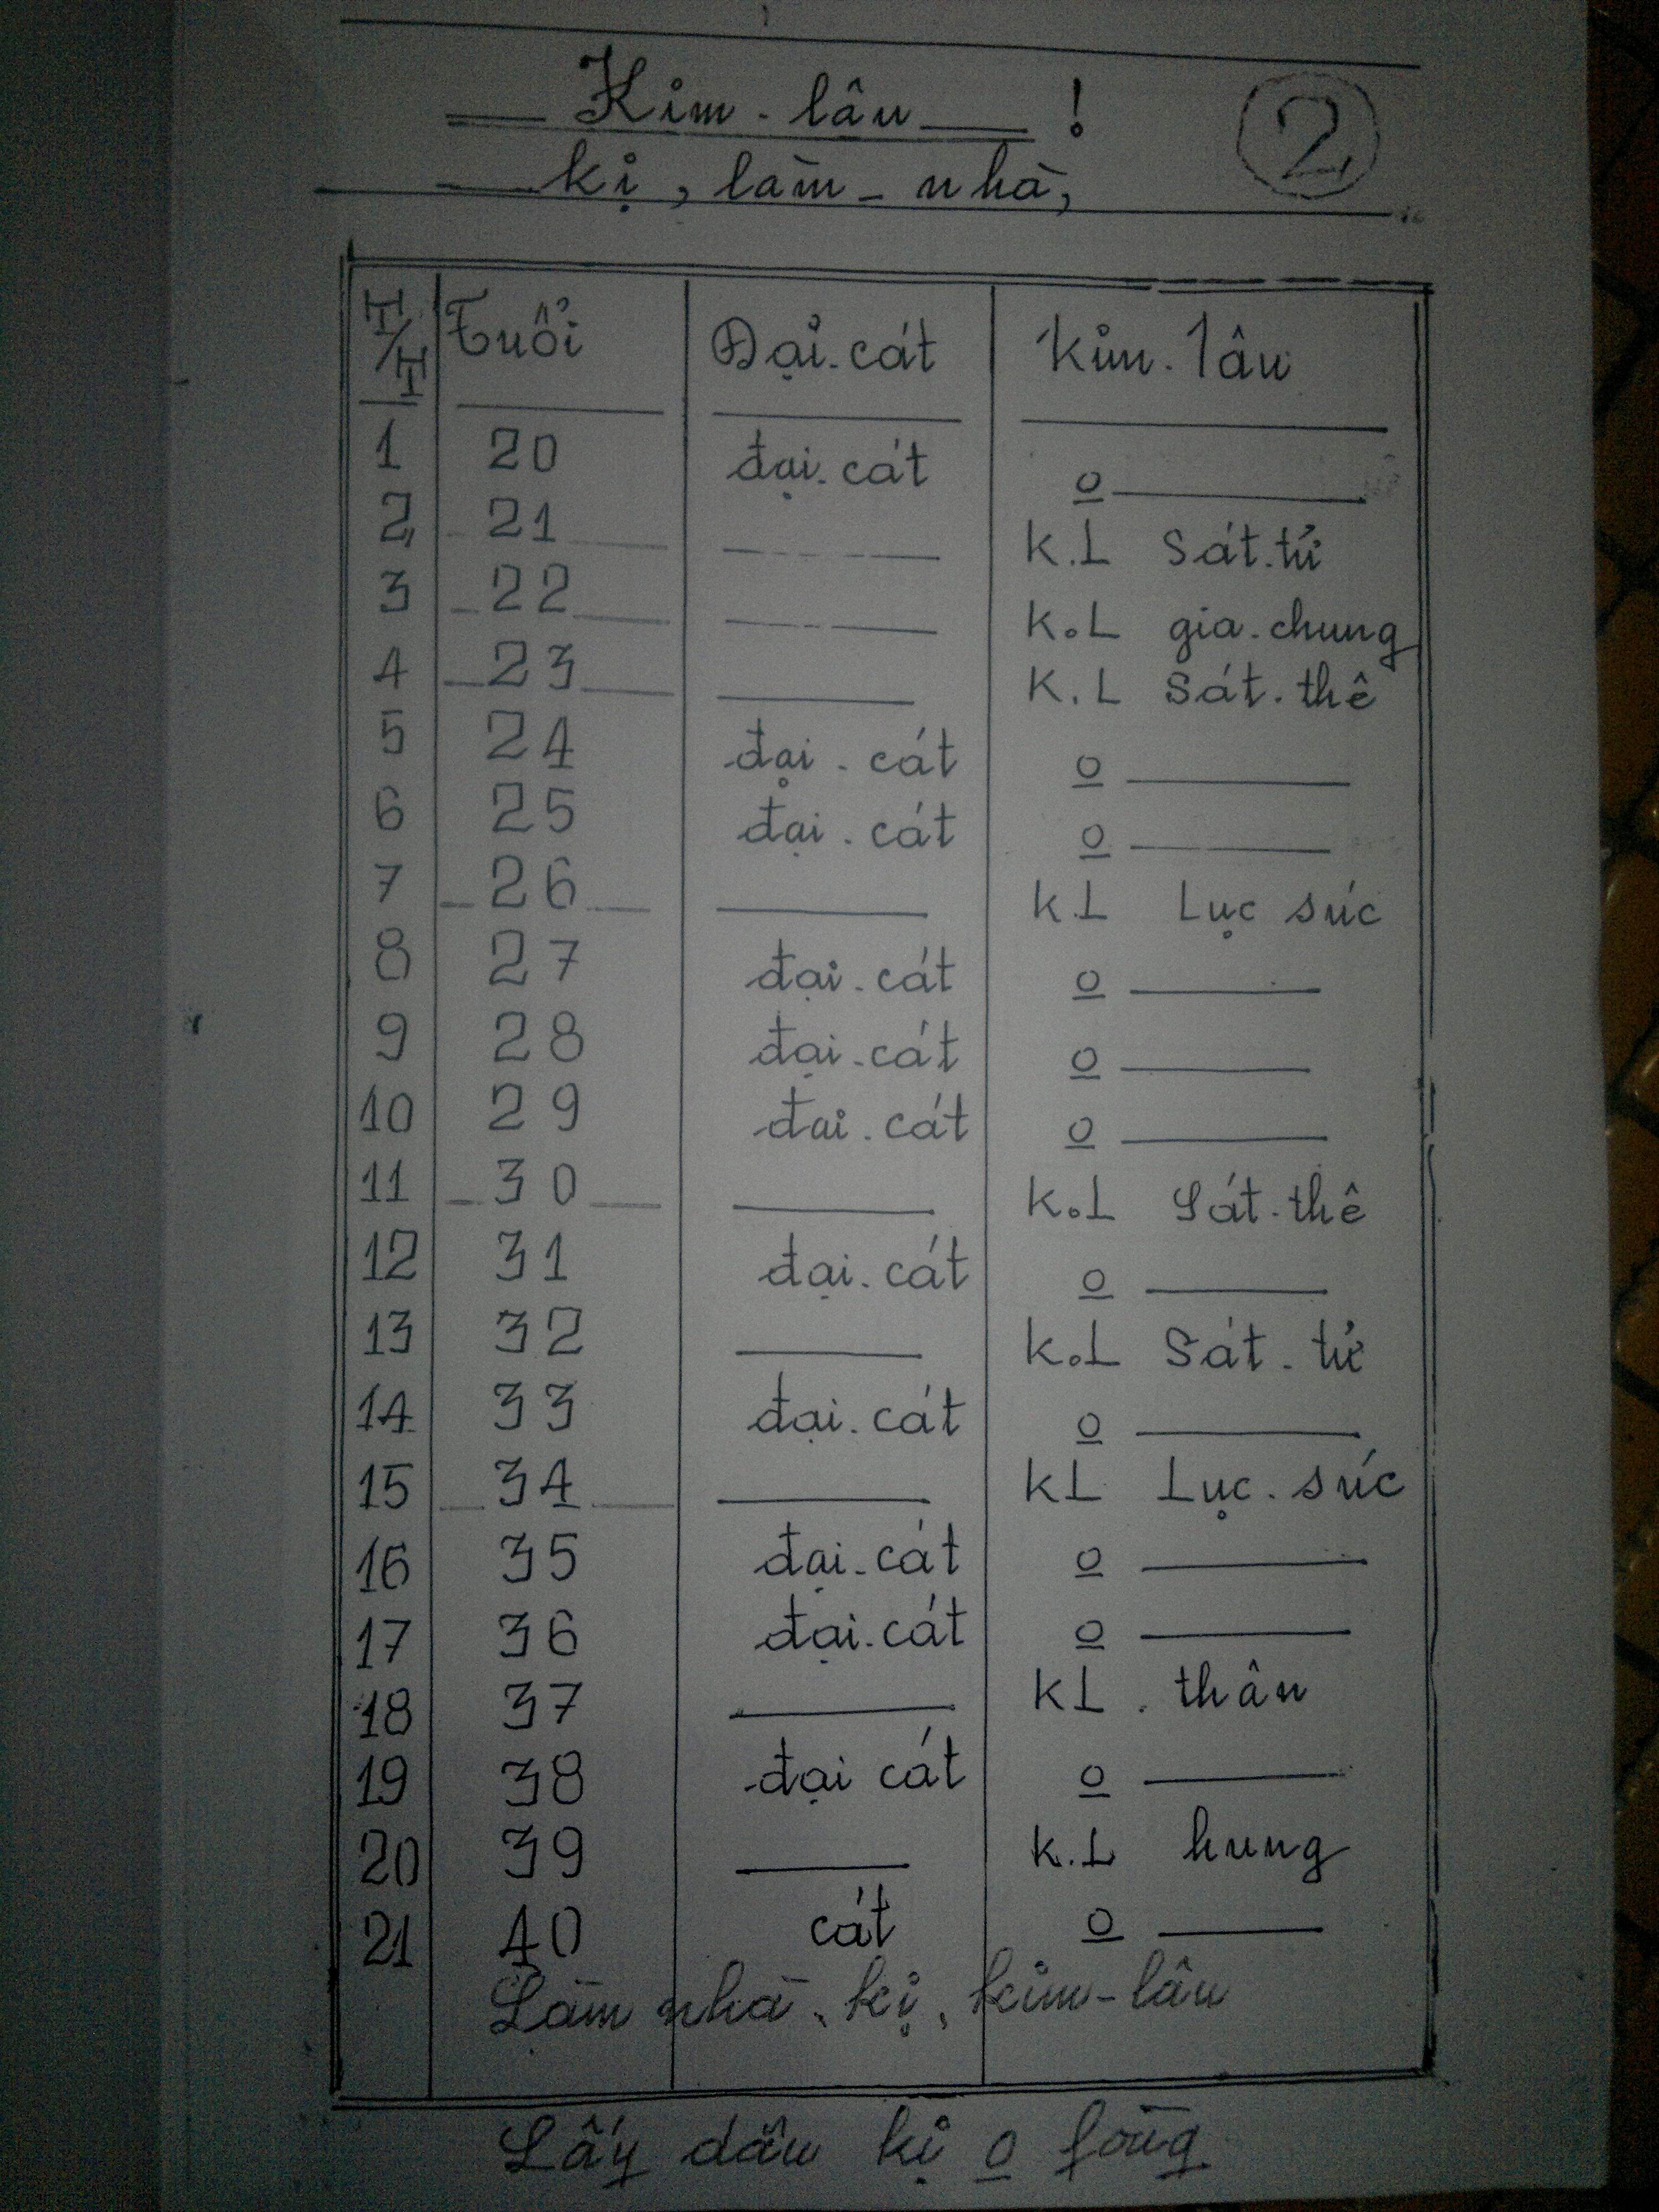 Kim - lâu !
②
kị, làm - nhà,
T/T Tuổi Đại cát Kim lâu
1 20 đại cát o
2 21 K.L Sát tử
3 22 K.L gia chung
4 23 K.L Sát thê
5 24 đại cát o
6 25 đại cát o
7 26 K.L Lục súc
8 27 đại cát o
9 28 đại cát o
10 29 đại cát o
11 30 K.L Sát thê
12 31 đại cát o
13 32 K.L Sát tử
14 33 đại cát o
15 34 KL Lục súc
16 35 đại cát o
17 36 đại cát o
18 37 KL thân
19 38 đại cát o
20 39 K.L hung
21 40 cát o
Làm nhà, kị, kim - lâu
Lấy dâu kị o fòng